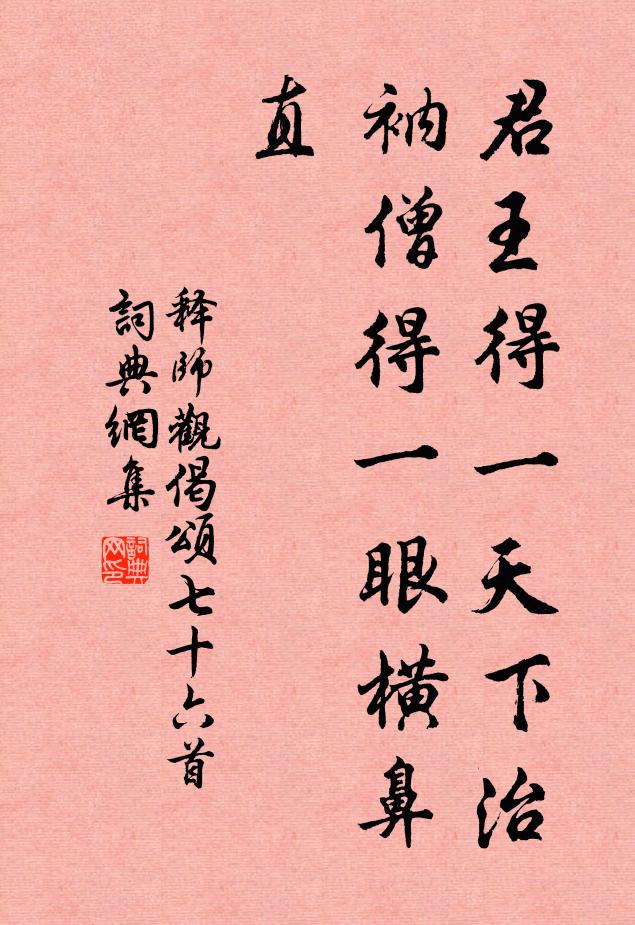 君王得一天下治
衲僧得一眼横鼻
直
释師觀偈頌七十六首
詞典網集
詞典
网印